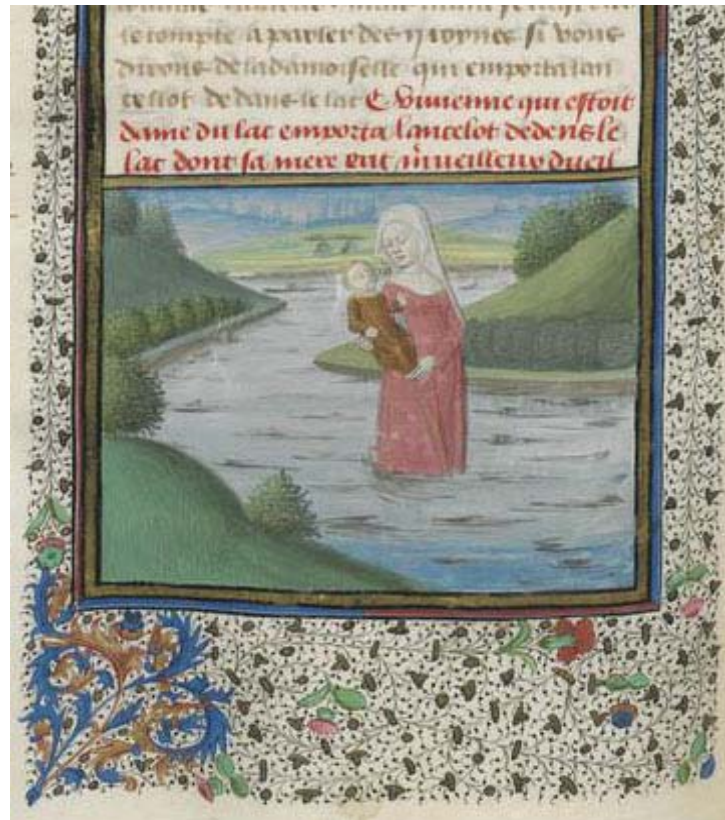 le compte a parler des ii roynes si vous
dirons de la damoiselle qui emporta lan
celot dedans le lac Et Viuienne qui estoit
dame du lac emporta lancelot dedens le
lac dont sa mere eut m̄ueilleux dueil